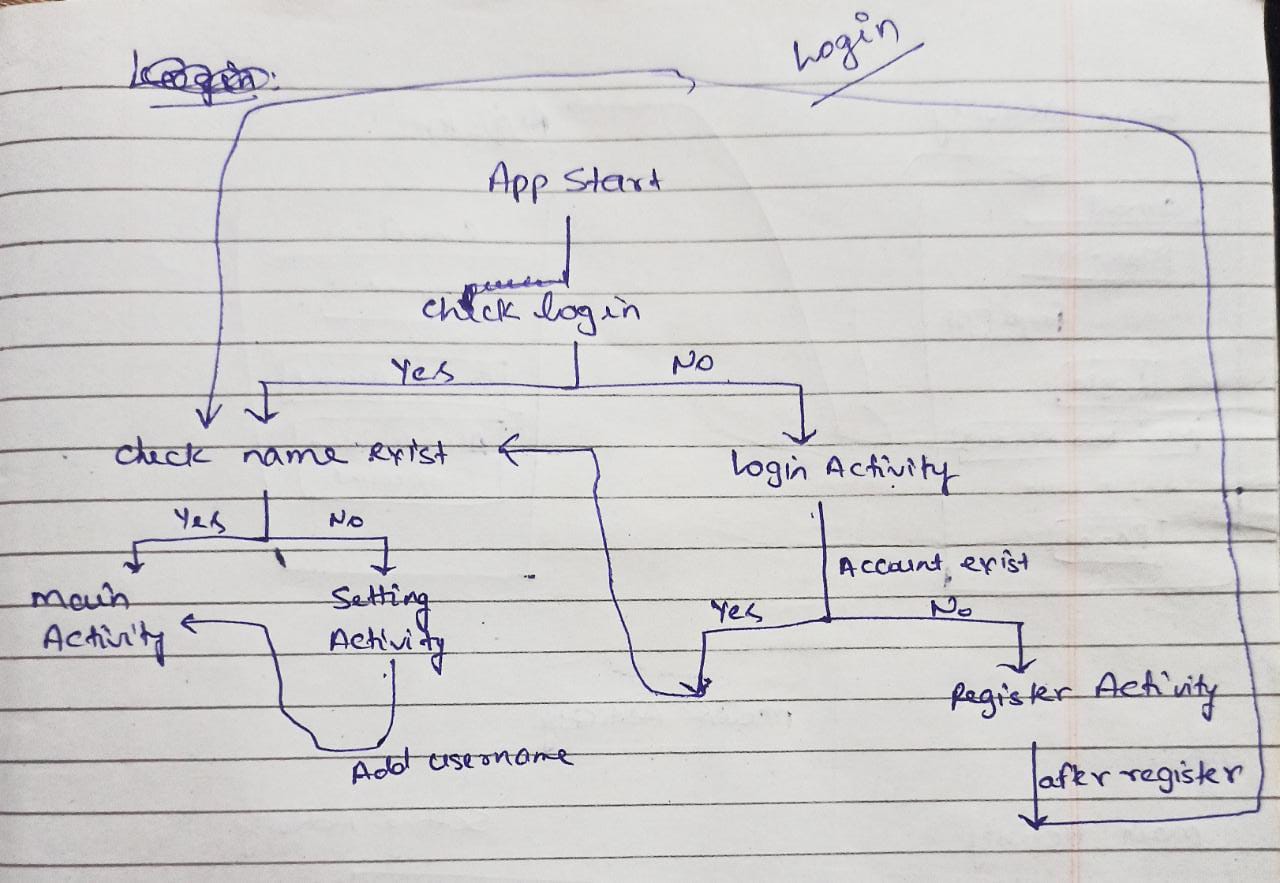 Login
Login:
App Start
check login
Yes
No
check name exist
Login Activity
Yes
No
Account exist
Main
Activity
Setting
Activity
Yes
No
Register Activity
Add username
after register